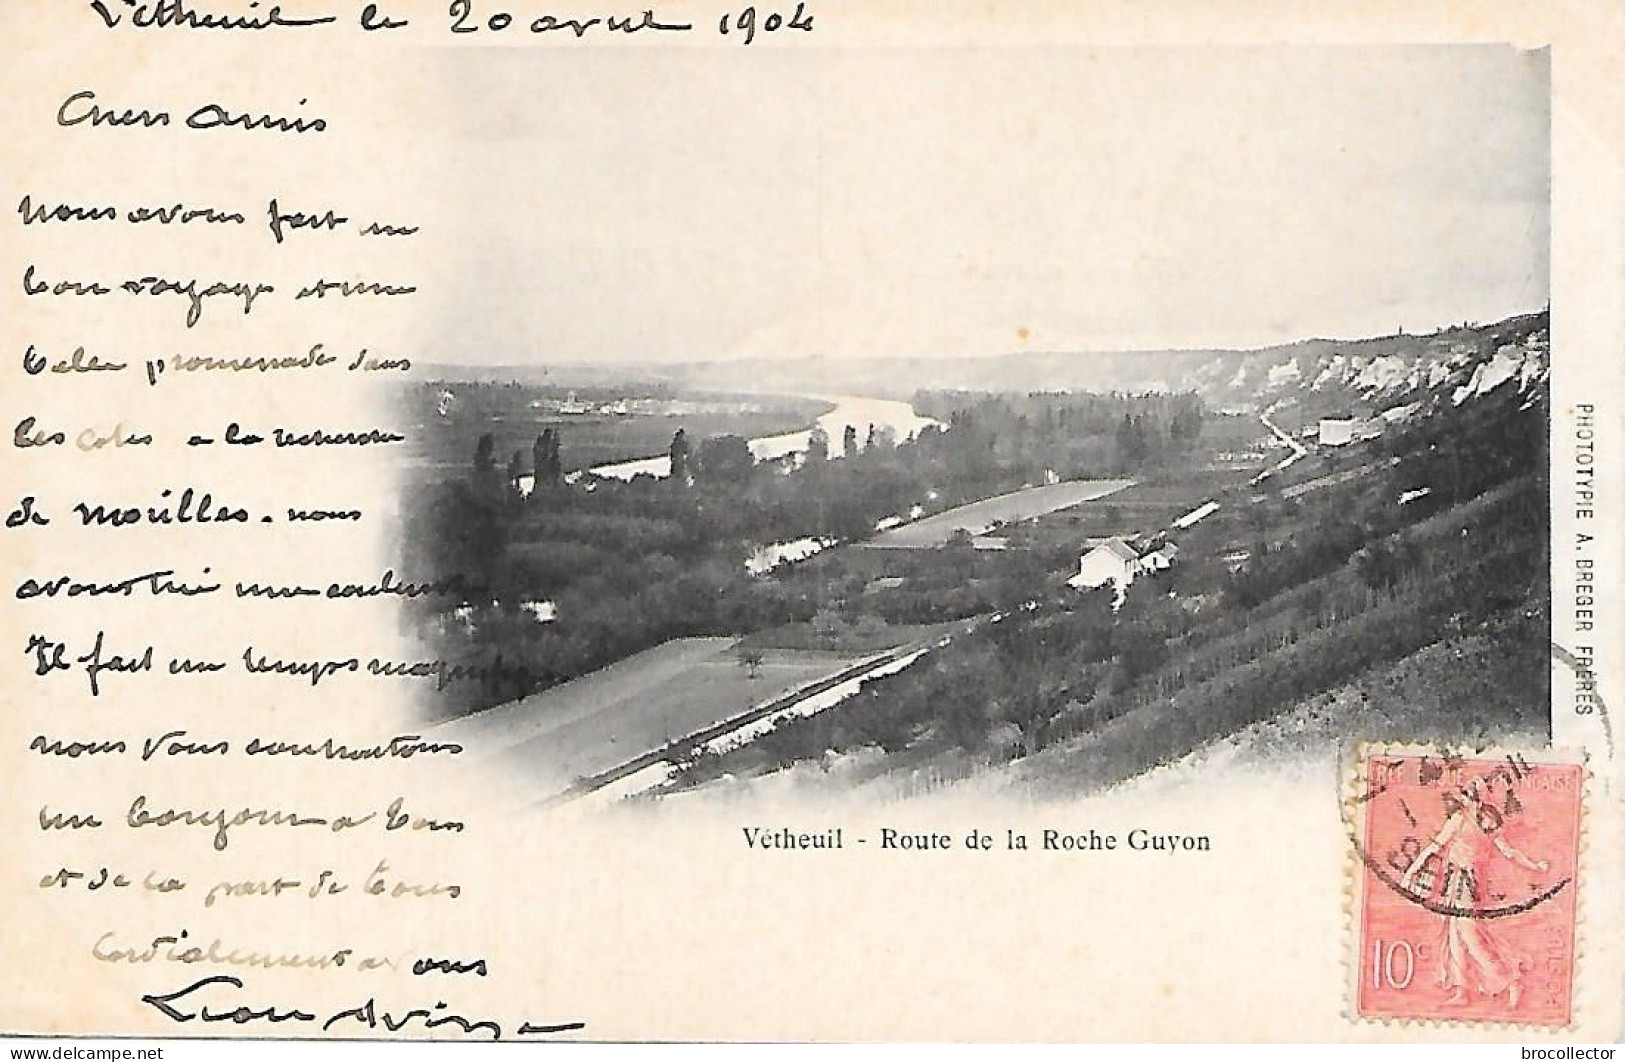 Vétheuil le 20 avril 1904
Chers Amis
nous avons fait un
bon voyage et une
belle promenade dans
les cotes a la recherche
de morilles. nous
avons
Il fait un temps
nous vous souhaitons
un bonjour a tous
et de la part de tous
Cordialement a vous
Léon
Vétheuil - Route de la Roche Guyon
PHOTOTYPIE A. BREGER FRERES
AVRIL
04
SEINE
10c
POSTES
delcampe.net
brocollector